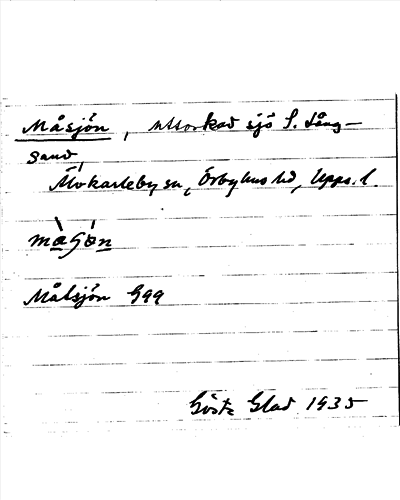 Måsjön, uttorkad sjö S. Lång-
sand,
Älvkarleby sn, Örbyhus hd, Upps. l.
Målsjön G99
Gösta Glad 1935